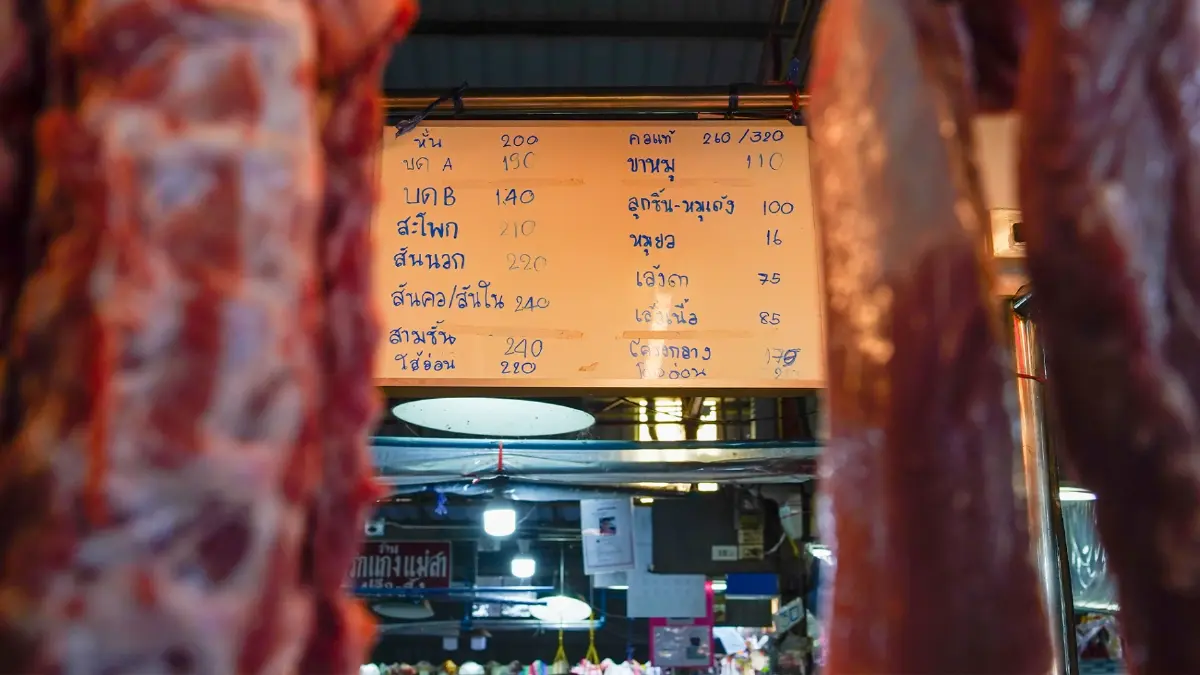 หั่น 200
บด A 190
บด B 140
สะโพก 210
สันนอก 220
สันคอ/สันใน 240
สามชั้น 240
ไส้อ่อน 220
คอแท้ 260/320
ขาหมู 110
ลูกชิ้น-หมูเด้ง 100
หมูยอ 16
เอ็งคา 75
เอ็งเนื้อ 85
โครงกลาง
อ่อน
ร้าน
กแกงแม่สา